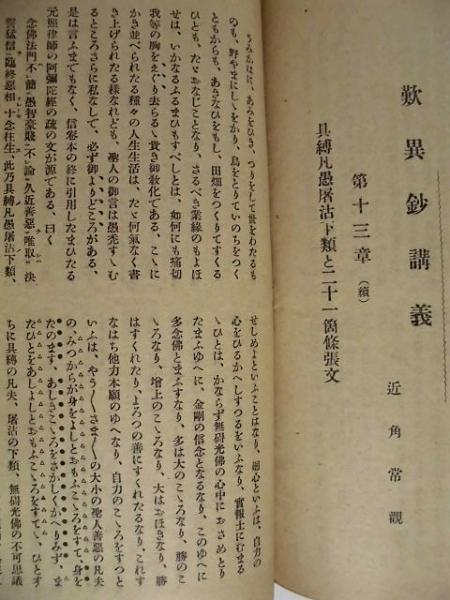 歎異鈔講義
近角常觀
第十三章（續）
具縛凡愚屠沽下類と二十一箇條張文
うみかはに、あみをひき、つりをして世をわたるも
のも、野やまにしゝをかり、鳥をとりていのちをつぐ
ともがらも、あきなひをもし、田畑をつくりてすぐる
ひとも、たゞおなじことなり、さるべき業緣のもよほ
せば、いかなるふるまひもすべしとは、如何にも痛切
我等の胸をゑぐり去らるゝ貴き御敎化である、こゝに
かき並べられたる種々の人生生活は、たゞ何氣なく書
き上げられたる樣なれども、聖人の御言は愚禿すゝむ
るところさらに私なしで、必ず御よりどころがある、
是は言ふまでもなく、信卷本の終に引用したまひたる
元照律師の阿彌陀經の疏の文が源である、曰く
念佛法門不簡愚智豪賤不論久近善惡唯取決
誓猛信臨終惡相十念往生、此乃具縛凡愚屠沽下類、
せしめよといふことはなり、廻心といふは、自力の
心をひるがへしすつるをいふなり、實報土にむまる
ゝひとは、かならず無碍光佛の心中におさめとり
たまふゆへに、金剛の信心となるなり、このゆへに
多念佛とまふすなり、多は大のこゝろなり、勝のこ
ゝろなり、增上のこゝろなり、大はおほきなり、勝
はすぐれたり、よろづの善にすぐれたるなり、これす
なはち他力本願のゆへなり、自力のこゝろをすつと
いふは、やう〳〵さま〴〵の大小の聖人善惡の凡夫
の、みづからが身をよしとおもふこゝろをすて、身を
たのまず、あしきこゝろをさかしくかへりみず、ま
たひとをあしよしとおもふこゝろをすてゝ、ひとす
ぢに具縛の凡夫、屠沽の下類、無碍光佛の不可思議